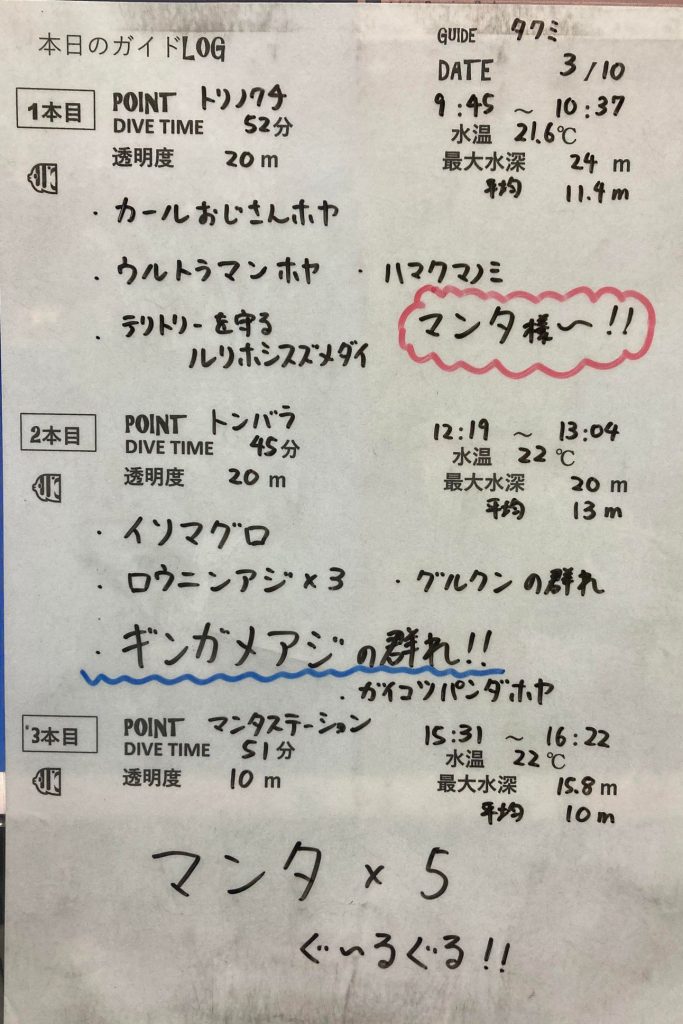 本日のガイドLOG
GUIDE タクミ
DATE 3/10
1本目
POINT トリノクチ
9:45 ~ 10:37
DIVE TIME 52分
水温 21.6℃
透明度 20 m
最大水深 24 m
平均 11.4m
・カールおじさんホヤ
・ウルトラマンホヤ ・ハマクマノミ
・テリトリーを守る
ルリホシスズメダイ
マンタ様~!!
2本目
POINT トンバラ
12:19 ~ 13:04
DIVE TIME 45分
水温 22℃
透明度 20 m
最大水深 20 m
平均 13 m
・イソマグロ
・ロウニンアジ×3 ・グルクンの群れ
・ギンガメアジの群れ!!
・ガイコツパンダホヤ
3本目
POINT マンタステーション
15:31 ~ 16:22
DIVE TIME 51分
水温 22℃
透明度 10 m
最大水深 15.8 m
平均 10 m
マンタ × 5
ぐ~るぐる!!